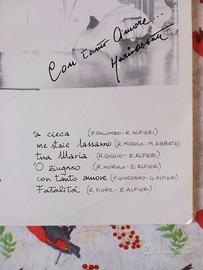 Con tanto Amore...
'a cieca (P. PALOMBO - E. ALFIERI)
me staie lassanno (R. MURILO - M. ABBATE)
tua Maria (R. GIGLIO - E. ALFIERI)
'O zingaro (R. MUROLO - E. ALFIERI)
con tanto amore (P. GIORDANO - G. ALFIERI)
Fatalità (R. FIORE - E. ALFIERI)
subito